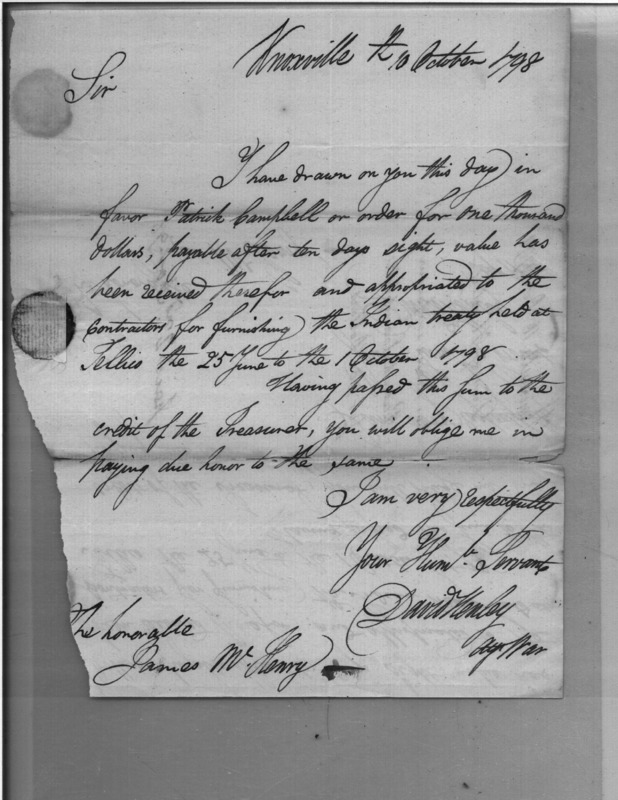 Knoxville th 10 October 1798
Sir
I have drawn on you this day in
favor Patrick Campbell or order for one thousand
dollars, payable after ten days sight, value has
been received therefor and appropriated to the
contractors for furnishing the Indian treaty held at
Tellico the 25 June to the 1 October 1798.
Having passed this sum to the
credit of the Treasurer, you will oblige me in
paying due honor to the same.
I am very respectfully
Your Humb. Servant
David Henley
Agt War
The honorable
James Mc. Henry